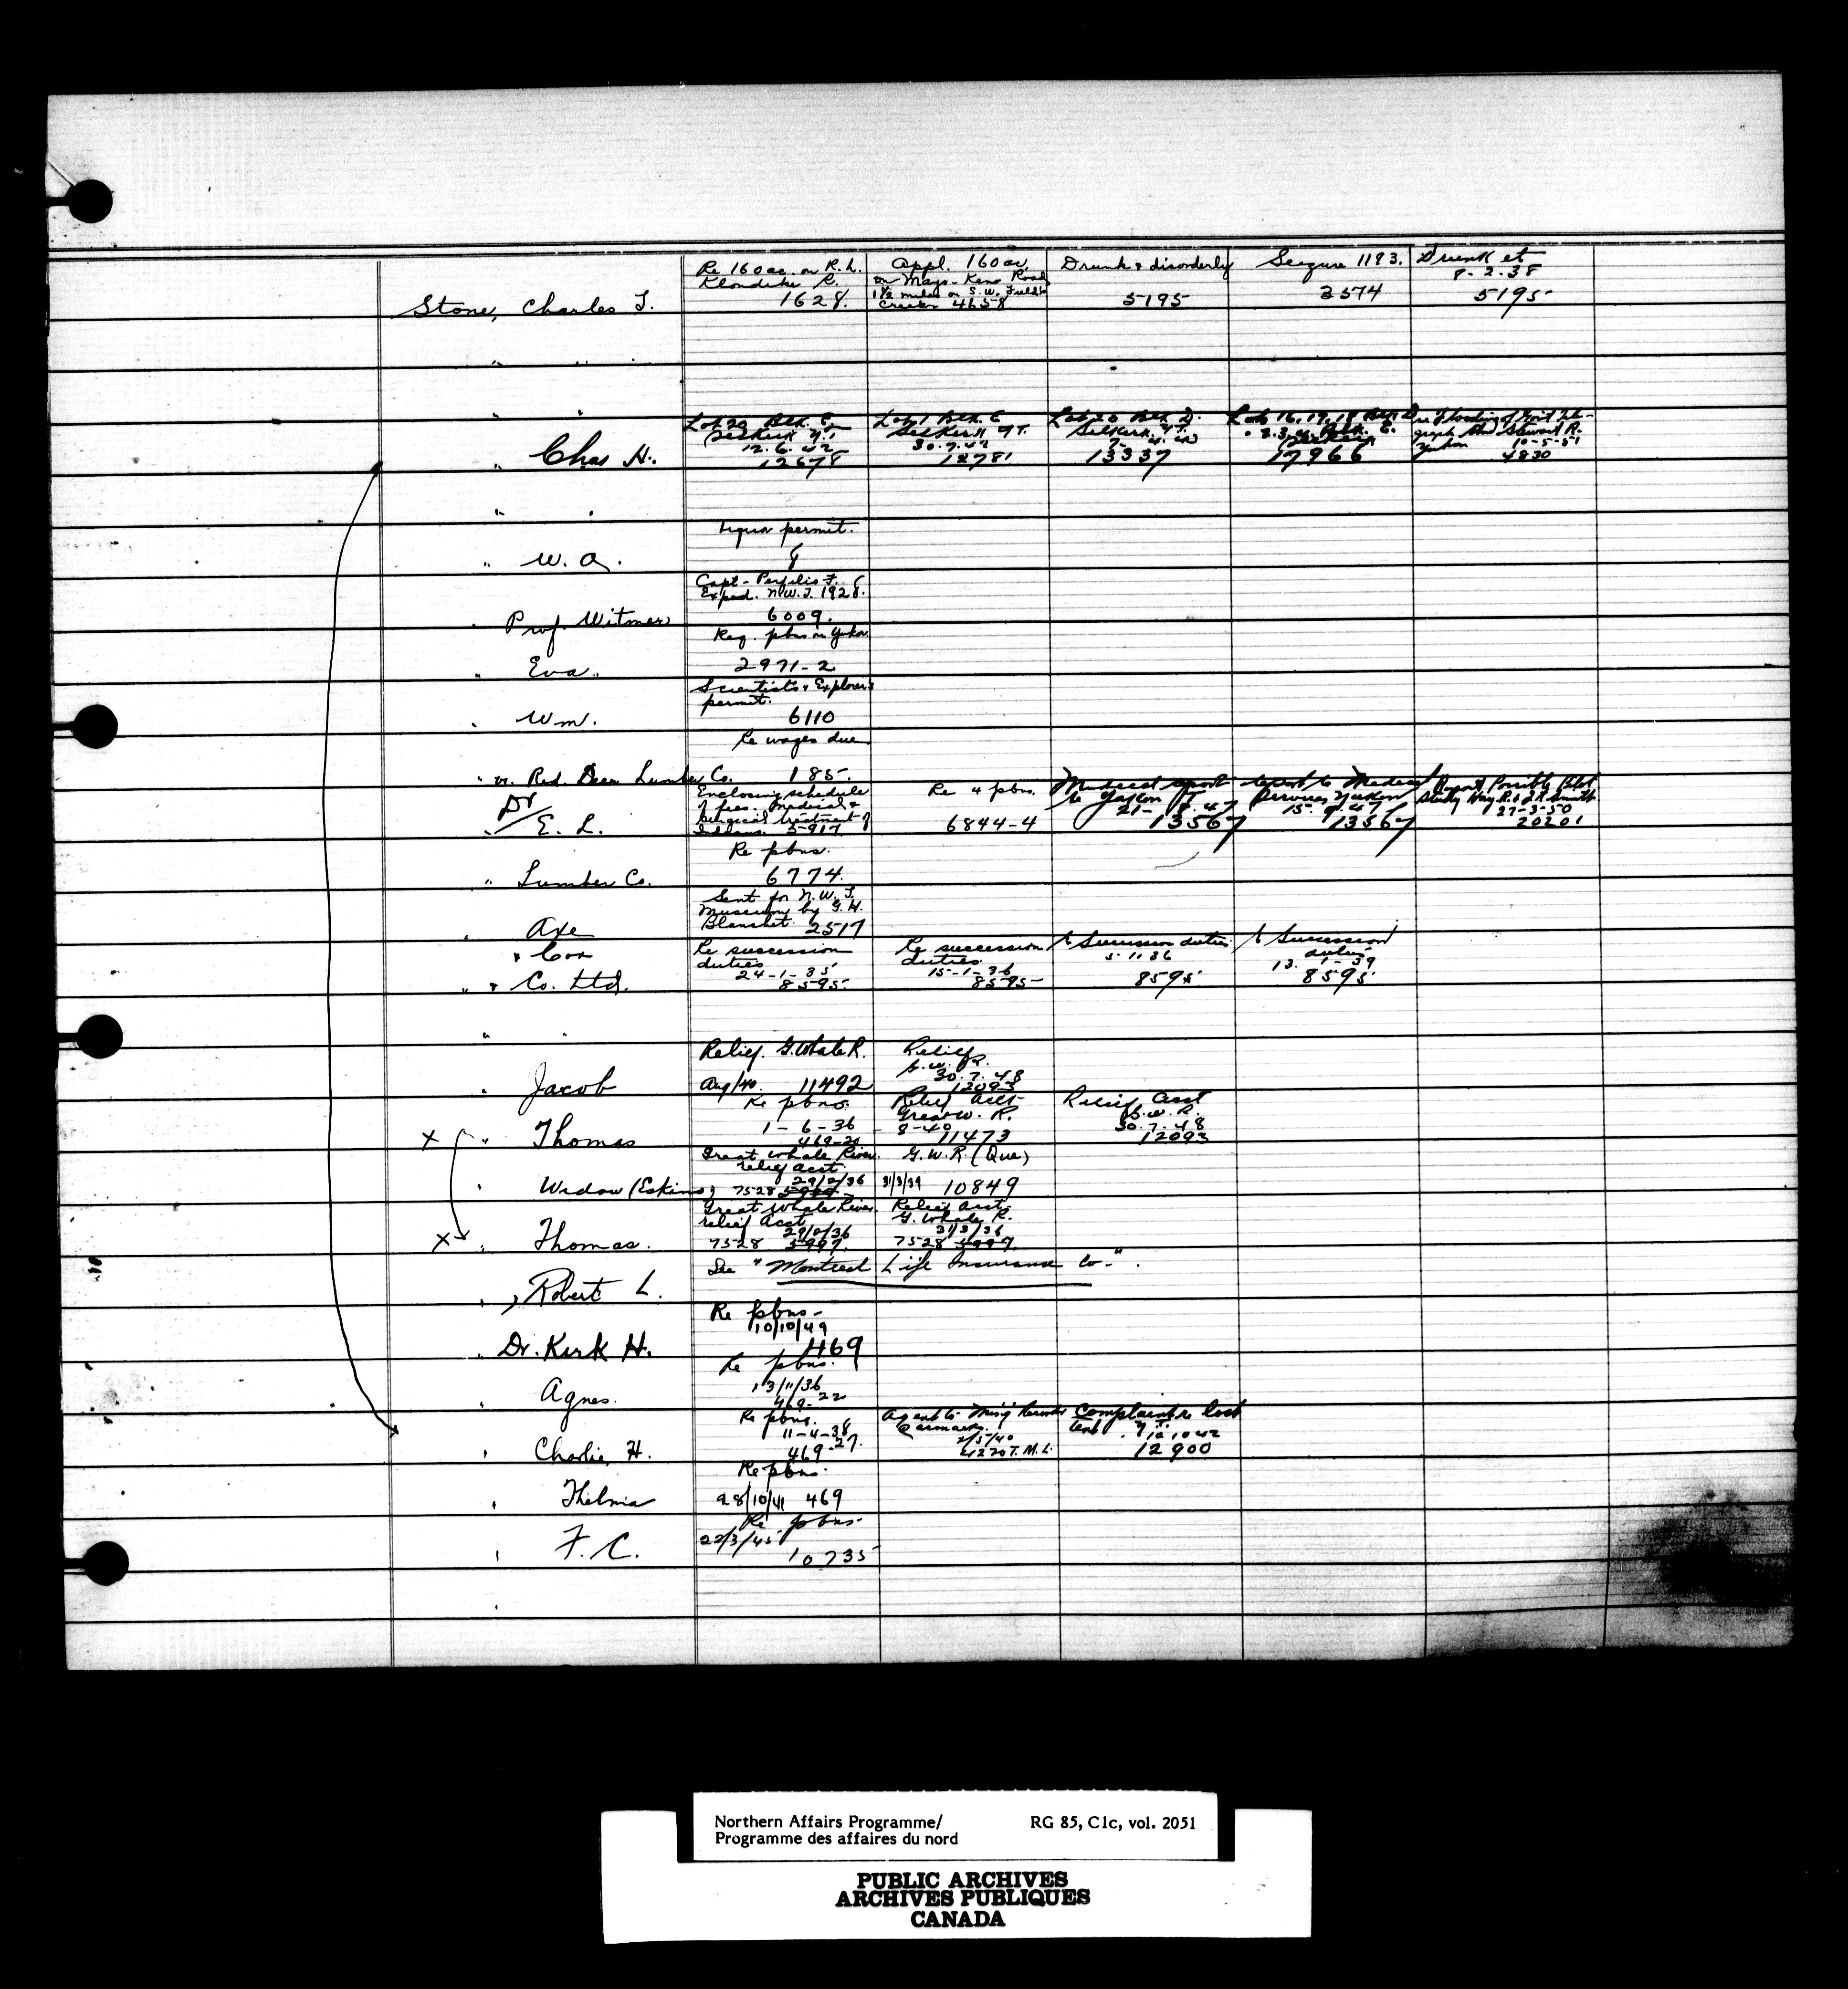 Stone, Charles T.
Re 160 ac. on R.L.
Klondike R.
1628.
Appl. 160 ac.
on Mayo-Keno Road
1½ miles on S.W. Fields
Creek 4658
Drunk & disorderly
5195
Seizure 1193.
3574
Drunk et
8-2-38
5195
" " "
" "
" Chas H.
Lot 20 Blk. E
Selkirk Y.T.
12.6.42
12678
Lot 1 Blk. E
Selkirk Y.T.
30.7.42
12781
Lot 20 Blk. D.
Selkirk, Y.T.
13337
Lots 16, 17, 18 Blk D
2.3.4. Blk. E.
Selkirk
17966
re Flooding of Gov't Tele-
graph Stn Stewart R.
Yukon 10-5-51
4830
" "
" W. A.
Liquor permit.
8
" Prof. Witmer
Capt-
Exped. N.W.T. 1928.
6009.
" Eva.
Reg. pbns in Yukon
2971-2
" Wm.
Scientists & Explorers
permit.
6110
" vs. Red Deer Lumber Co.
Re wages due
185.
" Dr E. L.
Enclosing schedule
of fees. medical &
surgical treatment of
Indians. 5917
Re 4 pbns.
6844-4
Medical report
to Yukon YT
21- 8.47
13567
report to Medical
Services Yukon
15.9.47
13567
Report Possibly Pilot
Study Hay R. & Ft. Smith
27-3-50
20201
" Lumber Co.
Re pbns.
6774.
" Axe
Sent for N.W.T.
Museum by G.H.
Blanchet. 2517
" & Cox
" & Co. Ltd.
Re succession
duties
24-1-35
8595.
Re succession
duties
15-1-36
8595-
re Succession duties
5.11.36
8595
re Succession
duties
13.1-39
8595
" "
" Jacob
Relief. G. Whale R.
Aug/40. 11492
Relief
G.W.R.
30.7.48
12093
x " Thomas
Re pbns.
1-6-36
469-20
Relief acct
Great W. R.
8-40
11473
Relief acct
G.W.R.
30.7.48
12093
" Widow (Eskimo)
Great Whale River
relief acct.
29/2/36
7528 5997
G.W.R. (Que)
31/3/39 10849
x " Thomas.
Great Whale River
relief Acct
29/2/36
7528 5997.
Relief acct.
G. Whale R.
31/3/36
7528 5997.
" , Robert L.
See "Montreal Life Insurance Co-".
" Dr. Kirk H.
Re pbns-
10/10/49
469
" Agnes.
Re pbns.
13/11/36
469-22
" Charlie, H.
Re pbns.
11-4-38
469-27.
Agent to
Carmacks.
2/5/40
4220 T.M.L.
Complaint re lost
tent Y.T.
12900
" Thelma
Re pbns.
28/10/41 469
" F. C.
Re pbns.
22/3/45
10735
"
Northern Affairs Programme/
Programme des affaires du nord
RG 85, C1c, vol. 2051
PUBLIC ARCHIVES
ARCHIVES PUBLIQUES
CANADA